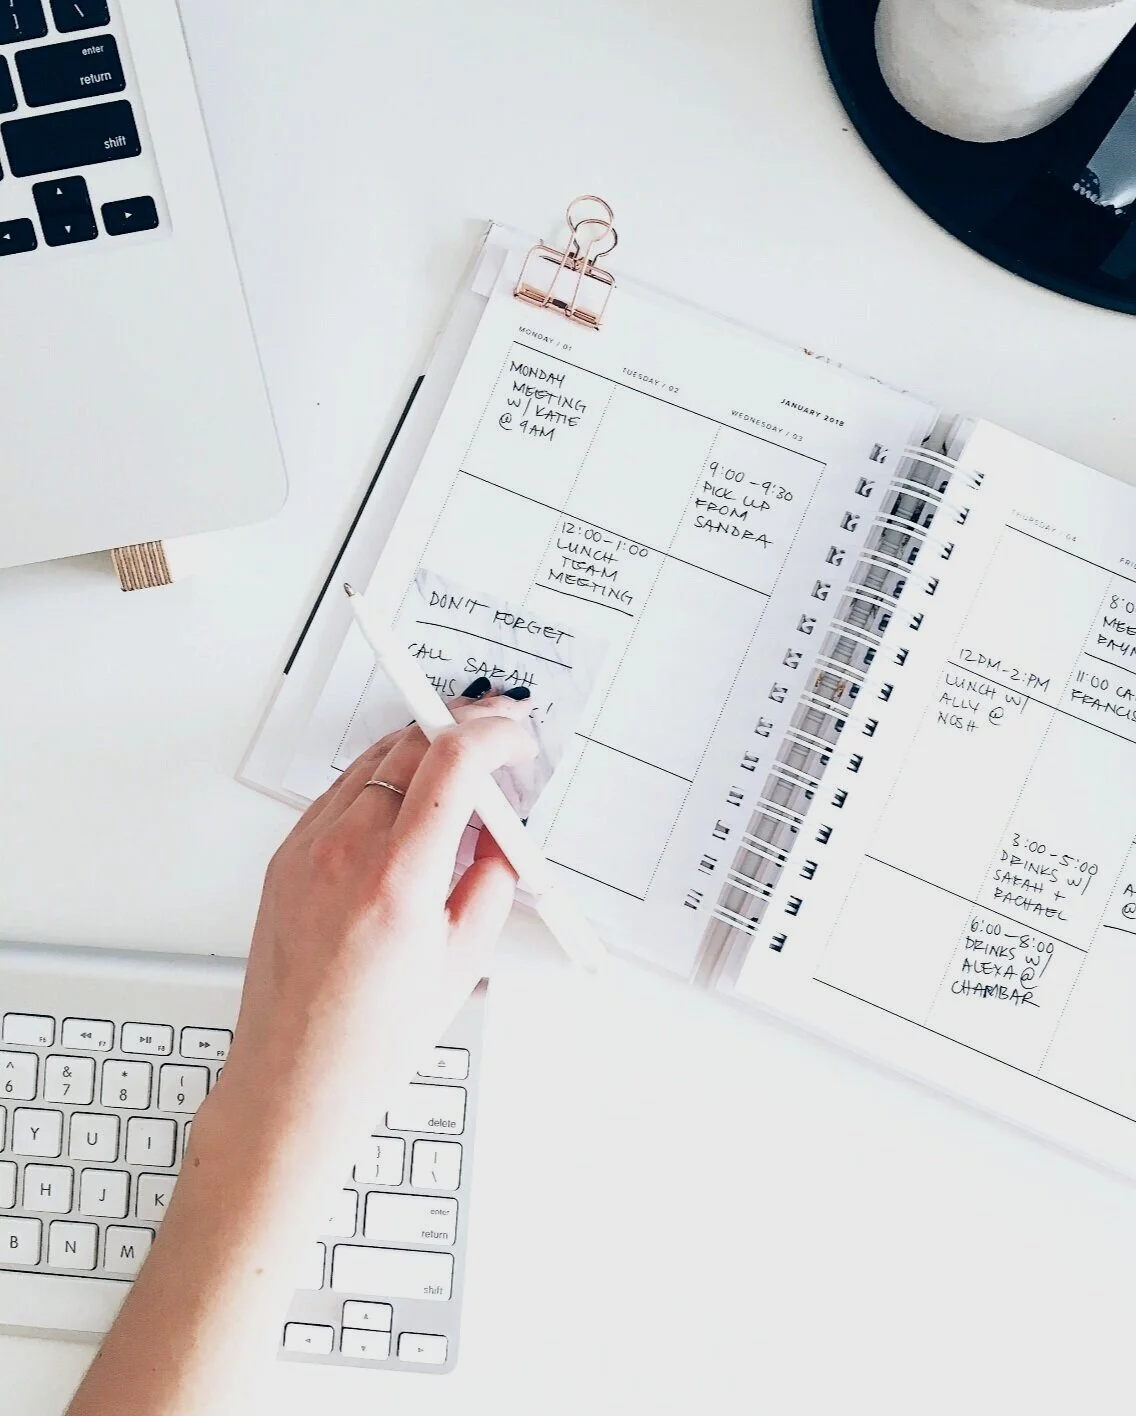 enter
return
shift
MONDAY / 01
TUESDAY / 02
JANUARY 2018
WEDNESDAY / 03
MONDAY
MEETING
W/ KATIE
@ 9AM
9:00-9:30
PICK UP
FROM
SANDRA
12:00-1:00
LUNCH
TEAM
MEETING
DON'T FORGET
CALL SARAH
THIS
THURSDAY / 04
12PM-2:PM
LUNCH W/
ALLY @
NOSH
11:00
3:00-5:00
DRINKS W/
SARAH +
RACHAEL
6:00-8:00
DRINKS W/
ALEXA @
CHAMBAR
F6
F7
F8
F9
^
6
&
7
*
8
(
9
delete
Y
U
I
}
]
|
\
H
J
K
enter
return
B
N
M
shift